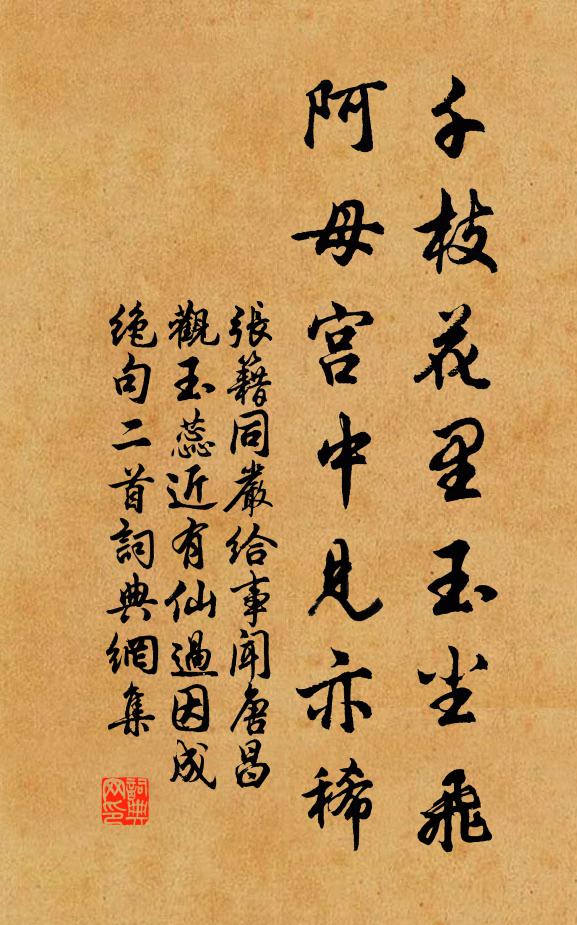 千枝花里玉尘飛
阿母宫中見亦稀
張籍同嚴給事聞唐昌
觀玉蕊近有仙過因成
絶句二首詞典網集
詞典网印